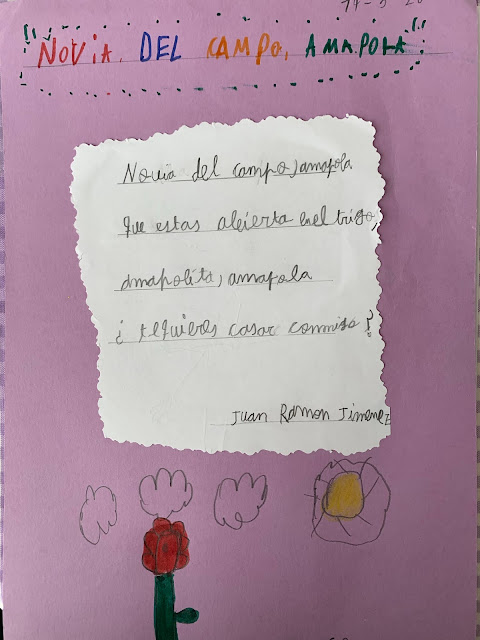 "NOVIA. DEL CAMPO, AMAPOLA"
Novia del campo, amapola
que estas abierta en el trigo,
amapolita, amapola
¿ te quieres casar conmigo?
Juan Ramon Jimenez